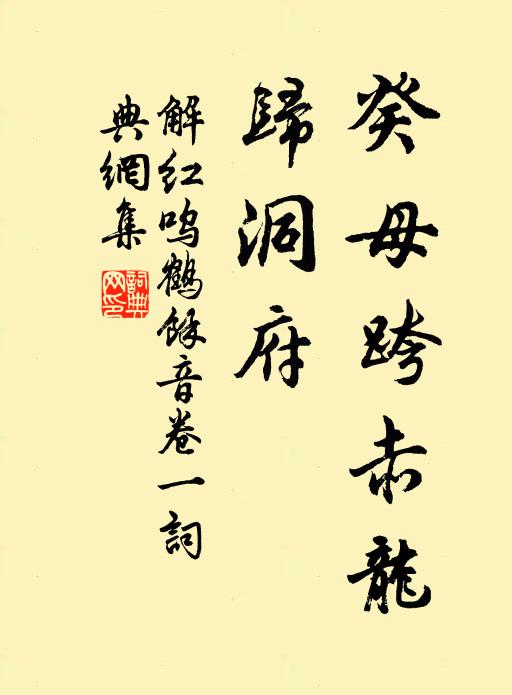 癸母跨赤龍
歸洞府
解红鸣鶴餘音卷一詞
典網集
詞典網印